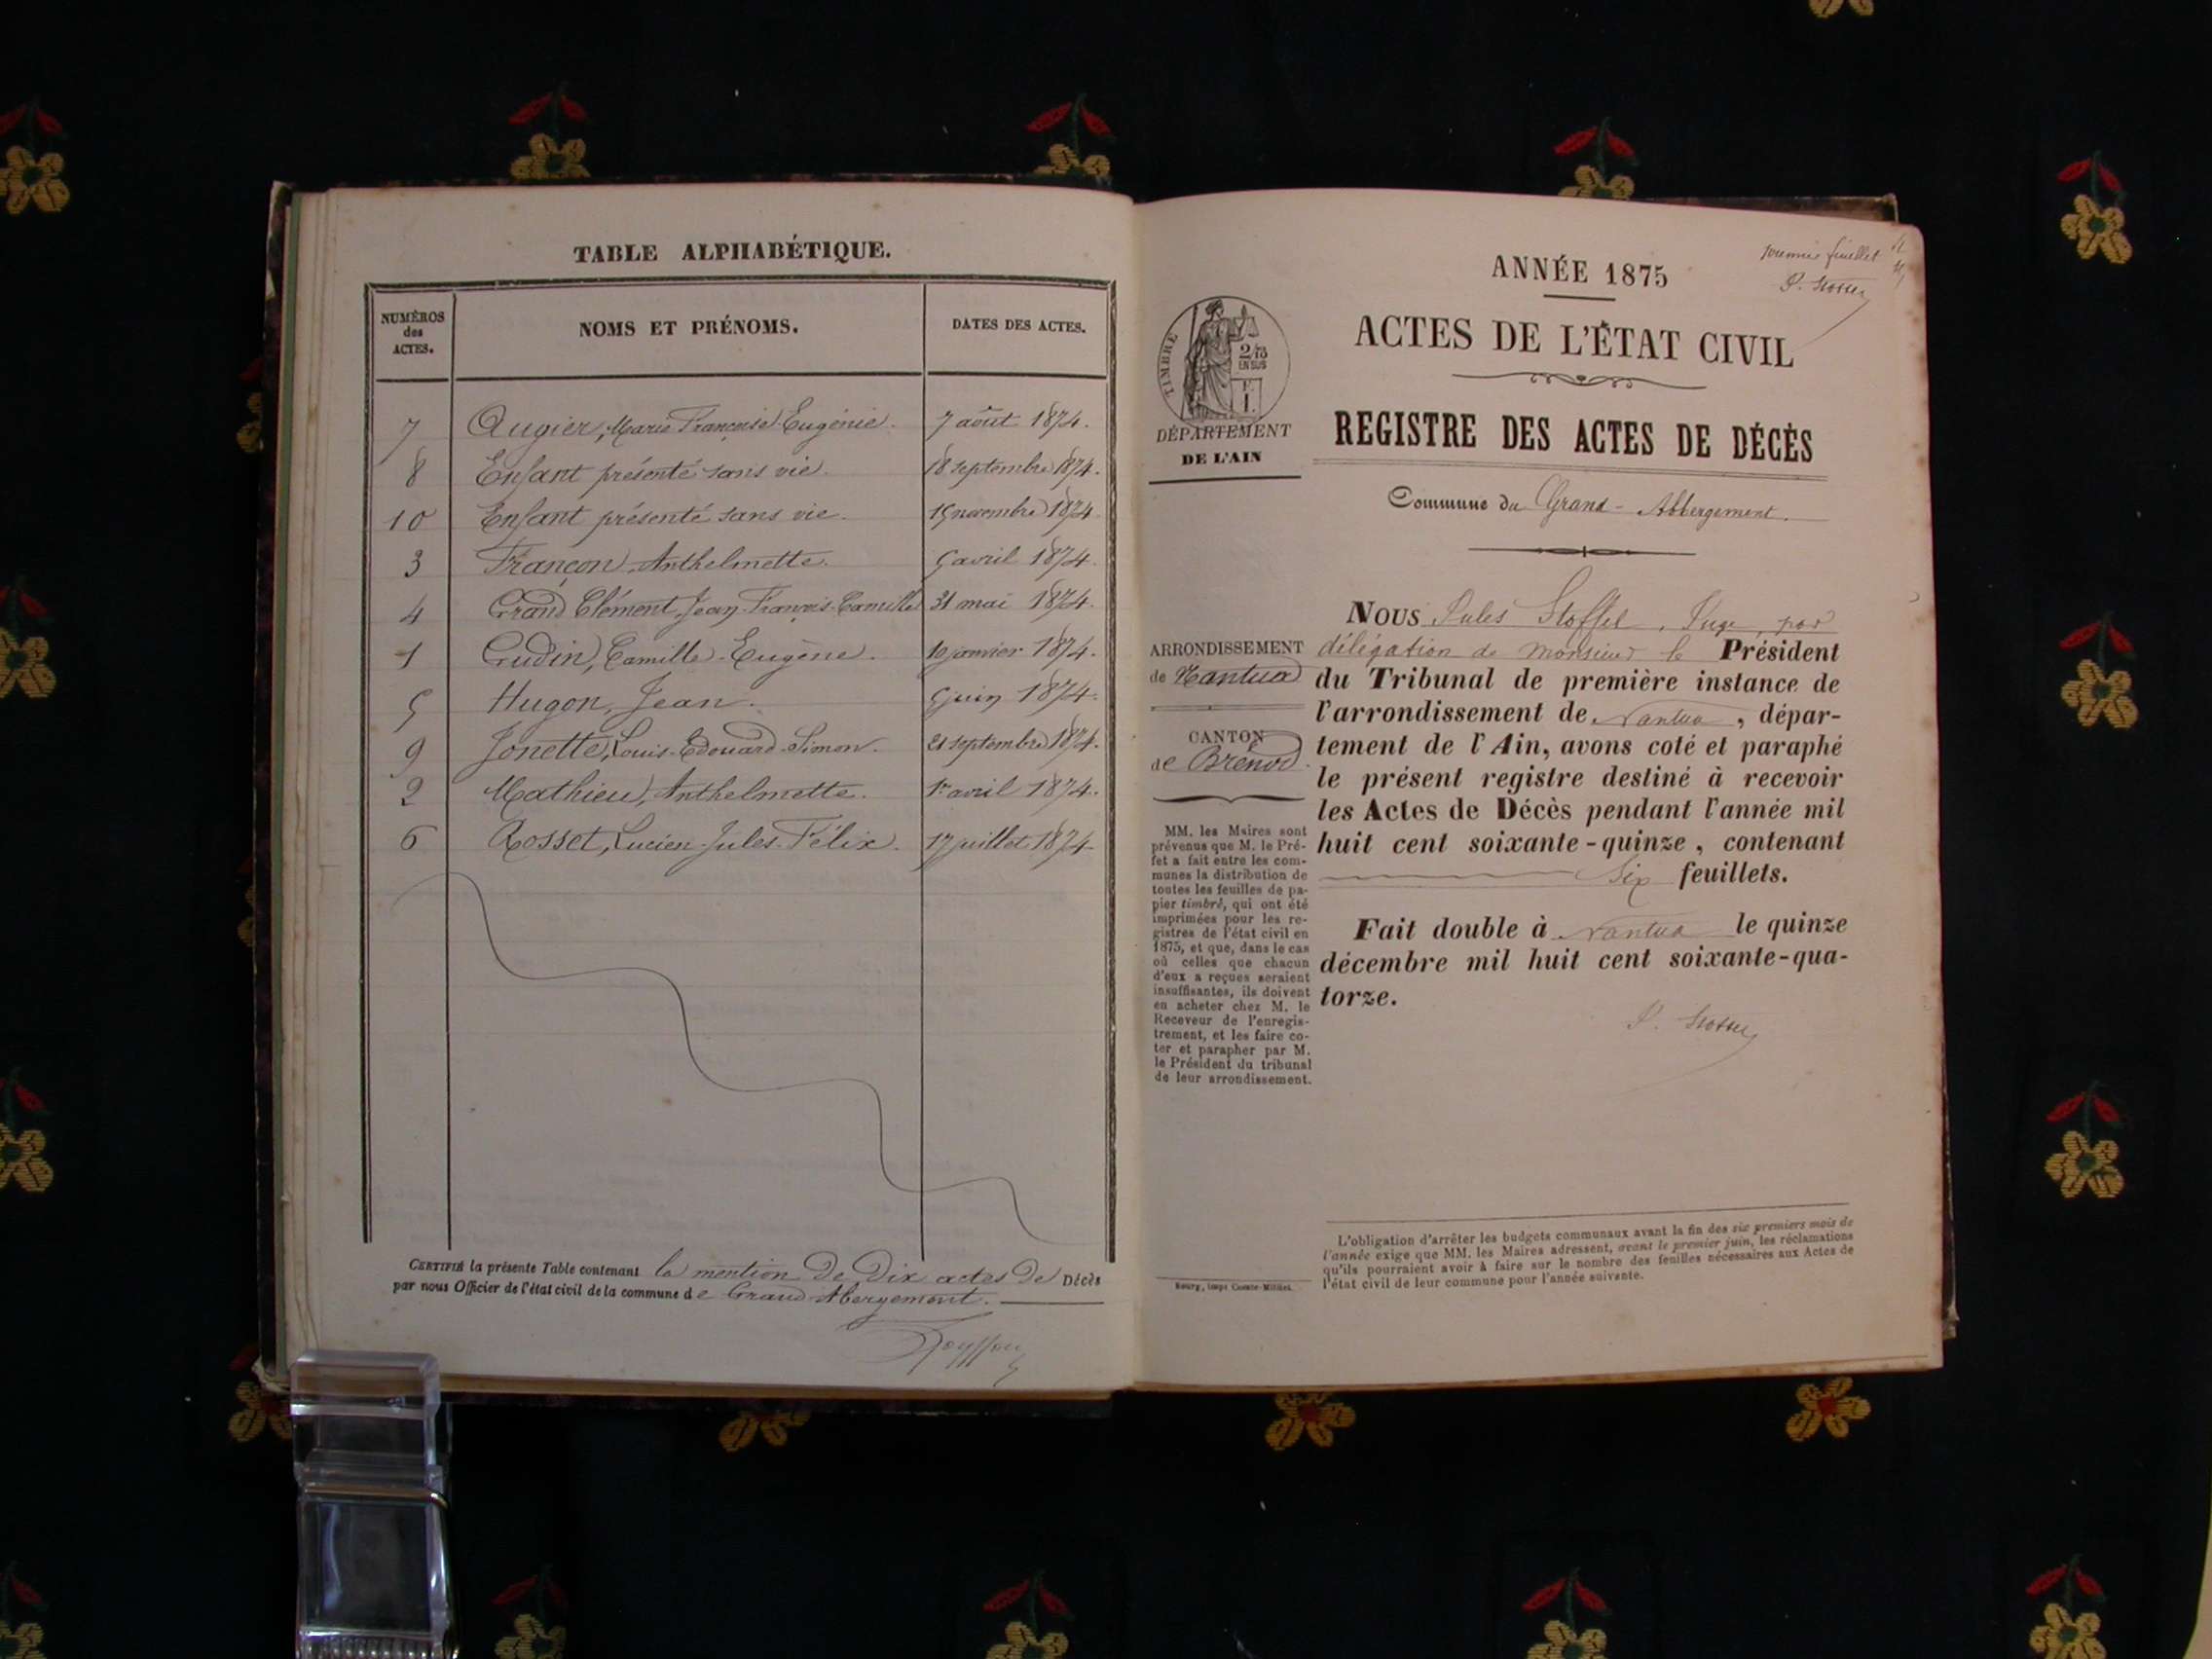 TABLE ALPHABÉTIQUE.
NUMÉROS des ACTES.
NOMS ET PRÉNOMS.
DATES DES ACTES.
7 Augier, Marie Françoise Eugénie. 7 août 1874.
8 Enfant présenté sans vie. 18 septembre 1874.
10 Enfant présenté sans vie. 1874.
3 Françon, Anthelmette. 5 avril 1874.
4 Grand Clément, Jean-François-Camille 31 mai 1874.
1 Gudin, Camille-Eugène. 10 janvier 1874.
5 Hugon, Jean. 5 juin 1874.
9 Jonette, Louis-Edouard-Simon. 21 septembre 1874.
2 Mathieu, Anthelmette. 1er avril 1874.
6 Rosset, Lucien-Jules-Félix. 17 juillet 1874
CERTIFIÉ la présente Table contenant la mention de Dix actes de Décès
par nous Officier de l'état civil de la commune de Grand-Abergement.
premier feuillet
ANNÉE 1875
ACTES DE L'ÉTAT CIVIL
REGISTRE DES ACTES DE DÉCÈS
Commune du Grand-Abbergement.
TIMBRE
2/10
EN SUS
DÉPARTEMENT
DE L'AIN
ARRONDISSEMENT
de Nantua
CANTON
de Brénod.
MM. les Maires sont
prévenus que M. le Pré-
fet a fait entre les com-
munes la distribution de
toutes les feuilles de pa-
pier timbré, qui ont été
imprimées pour les re-
gistres de l'état civil en
1875, et que, dans le cas
où celles que chacun
d'eux a reçues seraient
insuffisantes, ils doivent
en acheter chez M. le
Receveur de l'enregis-
trement, et les faire co-
ter et parapher par M.
le Président du tribunal
de leur arrondissement.
NOUS Jules Stoffel, Juge, par
délégation de monsieur le Président
du Tribunal de première instance de
l'arrondissement de Nantua, dépar-
tement de l'Ain, avons coté et paraphé
le présent registre destiné à recevoir
les Actes de Décès pendant l'année mil
huit cent soixante-quinze, contenant
Six feuillets.
Fait double à Nantua le quinze
décembre mil huit cent soixante-qua-
torze.
L'obligation d'arrêter les budgets communaux avant la fin des six premiers mois de
l'année exige que MM. les Maires adressent, avant le premier juin, les réclamations
qu'ils pourraient avoir à faire sur le nombre des feuilles nécessaires aux Actes de
l'état civil de leur commune pour l'année suivante.
Bourg, imp. Comte-Milliet.